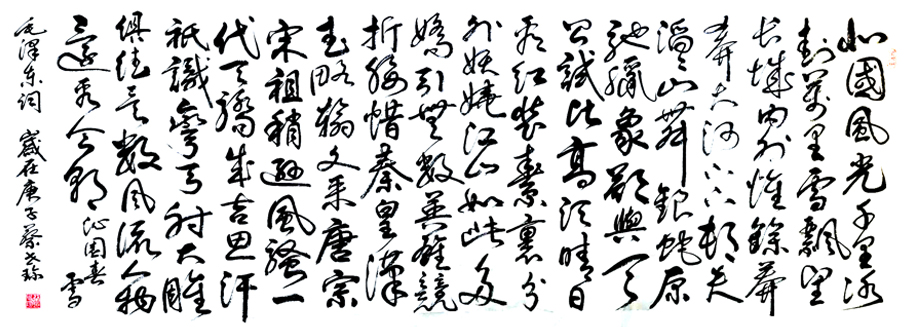 北國風光千里冰
封萬里雪飄望
长城内外惟餘莽
莽大河上下頓失
滔滔山舞银蛇原
驰臘象欲與天
公試比高須晴日
看红装素裹分
外妖娆江山如此多
嬌引無數英雄競
折腰惜秦皇漢
武略輸文采唐宗
宋祖稍遜風騷一
代天驕成吉思汗
祇識彎弓射大雕
俱往矣數風流人物
還看今朝 沁园春 雪
毛泽东词 歲在庚子蔡